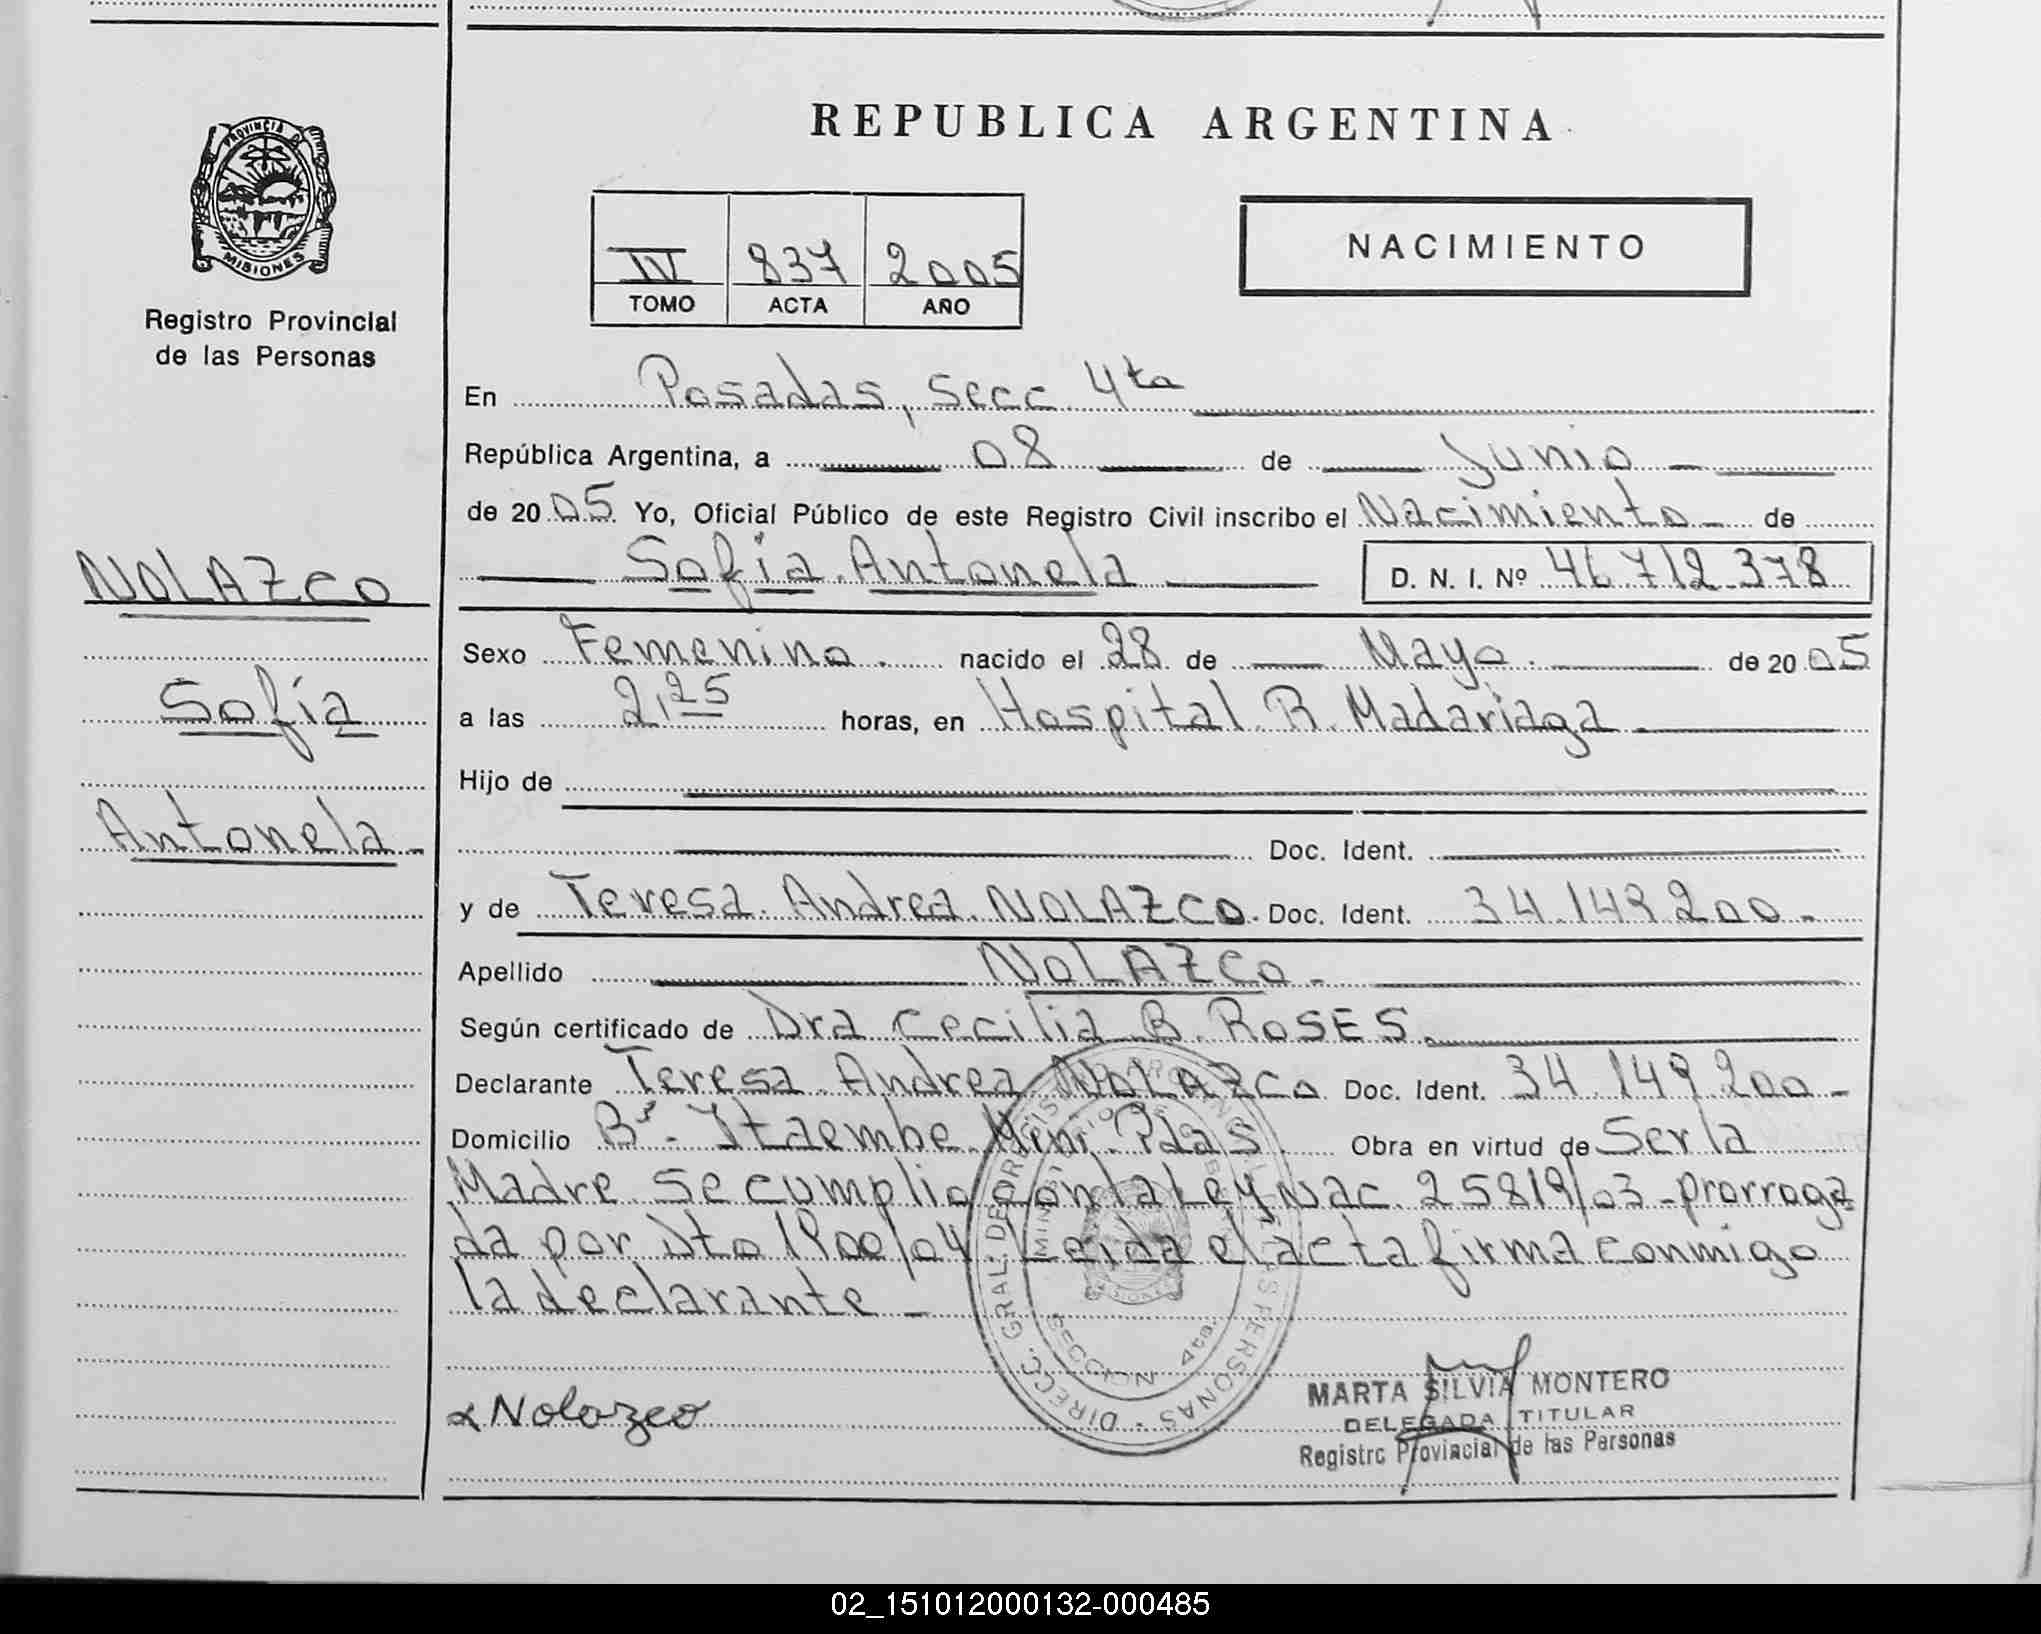 REPUBLICA ARGENTINA
PROVINCIA DE
MISIONES
Registro Provincial
de las Personas
IV 837 2005
TOMO ACTA AÑO
NACIMIENTO
En Posadas, Secc 4ta
República Argentina, a 08 de Junio
de 2005 Yo, Oficial Público de este Registro Civil inscribo el Nacimiento de
Sofía Antonela D. N. I. Nº 46 712 378
NOLAZCO
Sofía
Antonela
Sexo Femenino. nacido el 28 de Mayo. de 2005
a las 2,25 horas, en Hospital R. Madariaga
Hijo de
Doc. Ident.
y de Teresa Andrea NOLAZCO. Doc. Ident. 34.149.200.-
Apellido NOLAZCO.-
Según certificado de Dra Cecilia B. ROSES.
Declarante Teresa Andrea NOLAZCO Doc. Ident. 34.149.200-
Domicilio Bº- Itaembe Mini. Pdas Obra en virtud de Ser la
Madre se cumplio con la Ley Nac. 25819/03-prorroga
da por Dto 1900/04 Leida el acta firma conmigo
la declarante-
Nolazco
DIRECC. GRAL. DE PROVINCIAL DE LAS PERSONAS
SECCION 4ta.
MARTA SILVIA MONTERO
DELEGADA TITULAR
Registro Provincial de las Personas
02_151012000132-000485